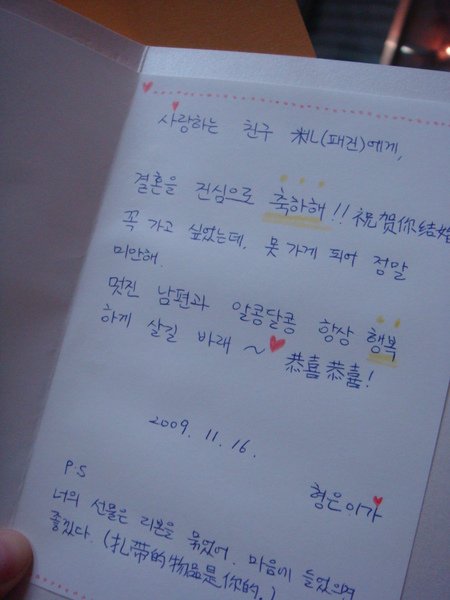 사랑하는 친구 (패건)에게,
결혼을 진심으로 축하해!! 祝贺你结婚
꼭 가고 싶었는데, 못 가게 되어 정말
미안해.
멋진 남편과 알콩달콩 항상 행복
하게 살길 바래 ~ 恭喜恭喜!
2009. 11. 16.
형은이가
P.S
너의 선물은 리본을 묶었어. 마음에 들었으면
좋겠다. (扎带的物品是你的.)